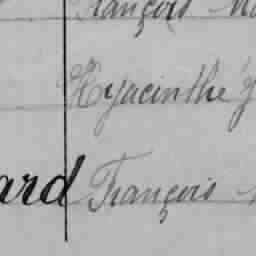 François
Hyacinthe
ard François